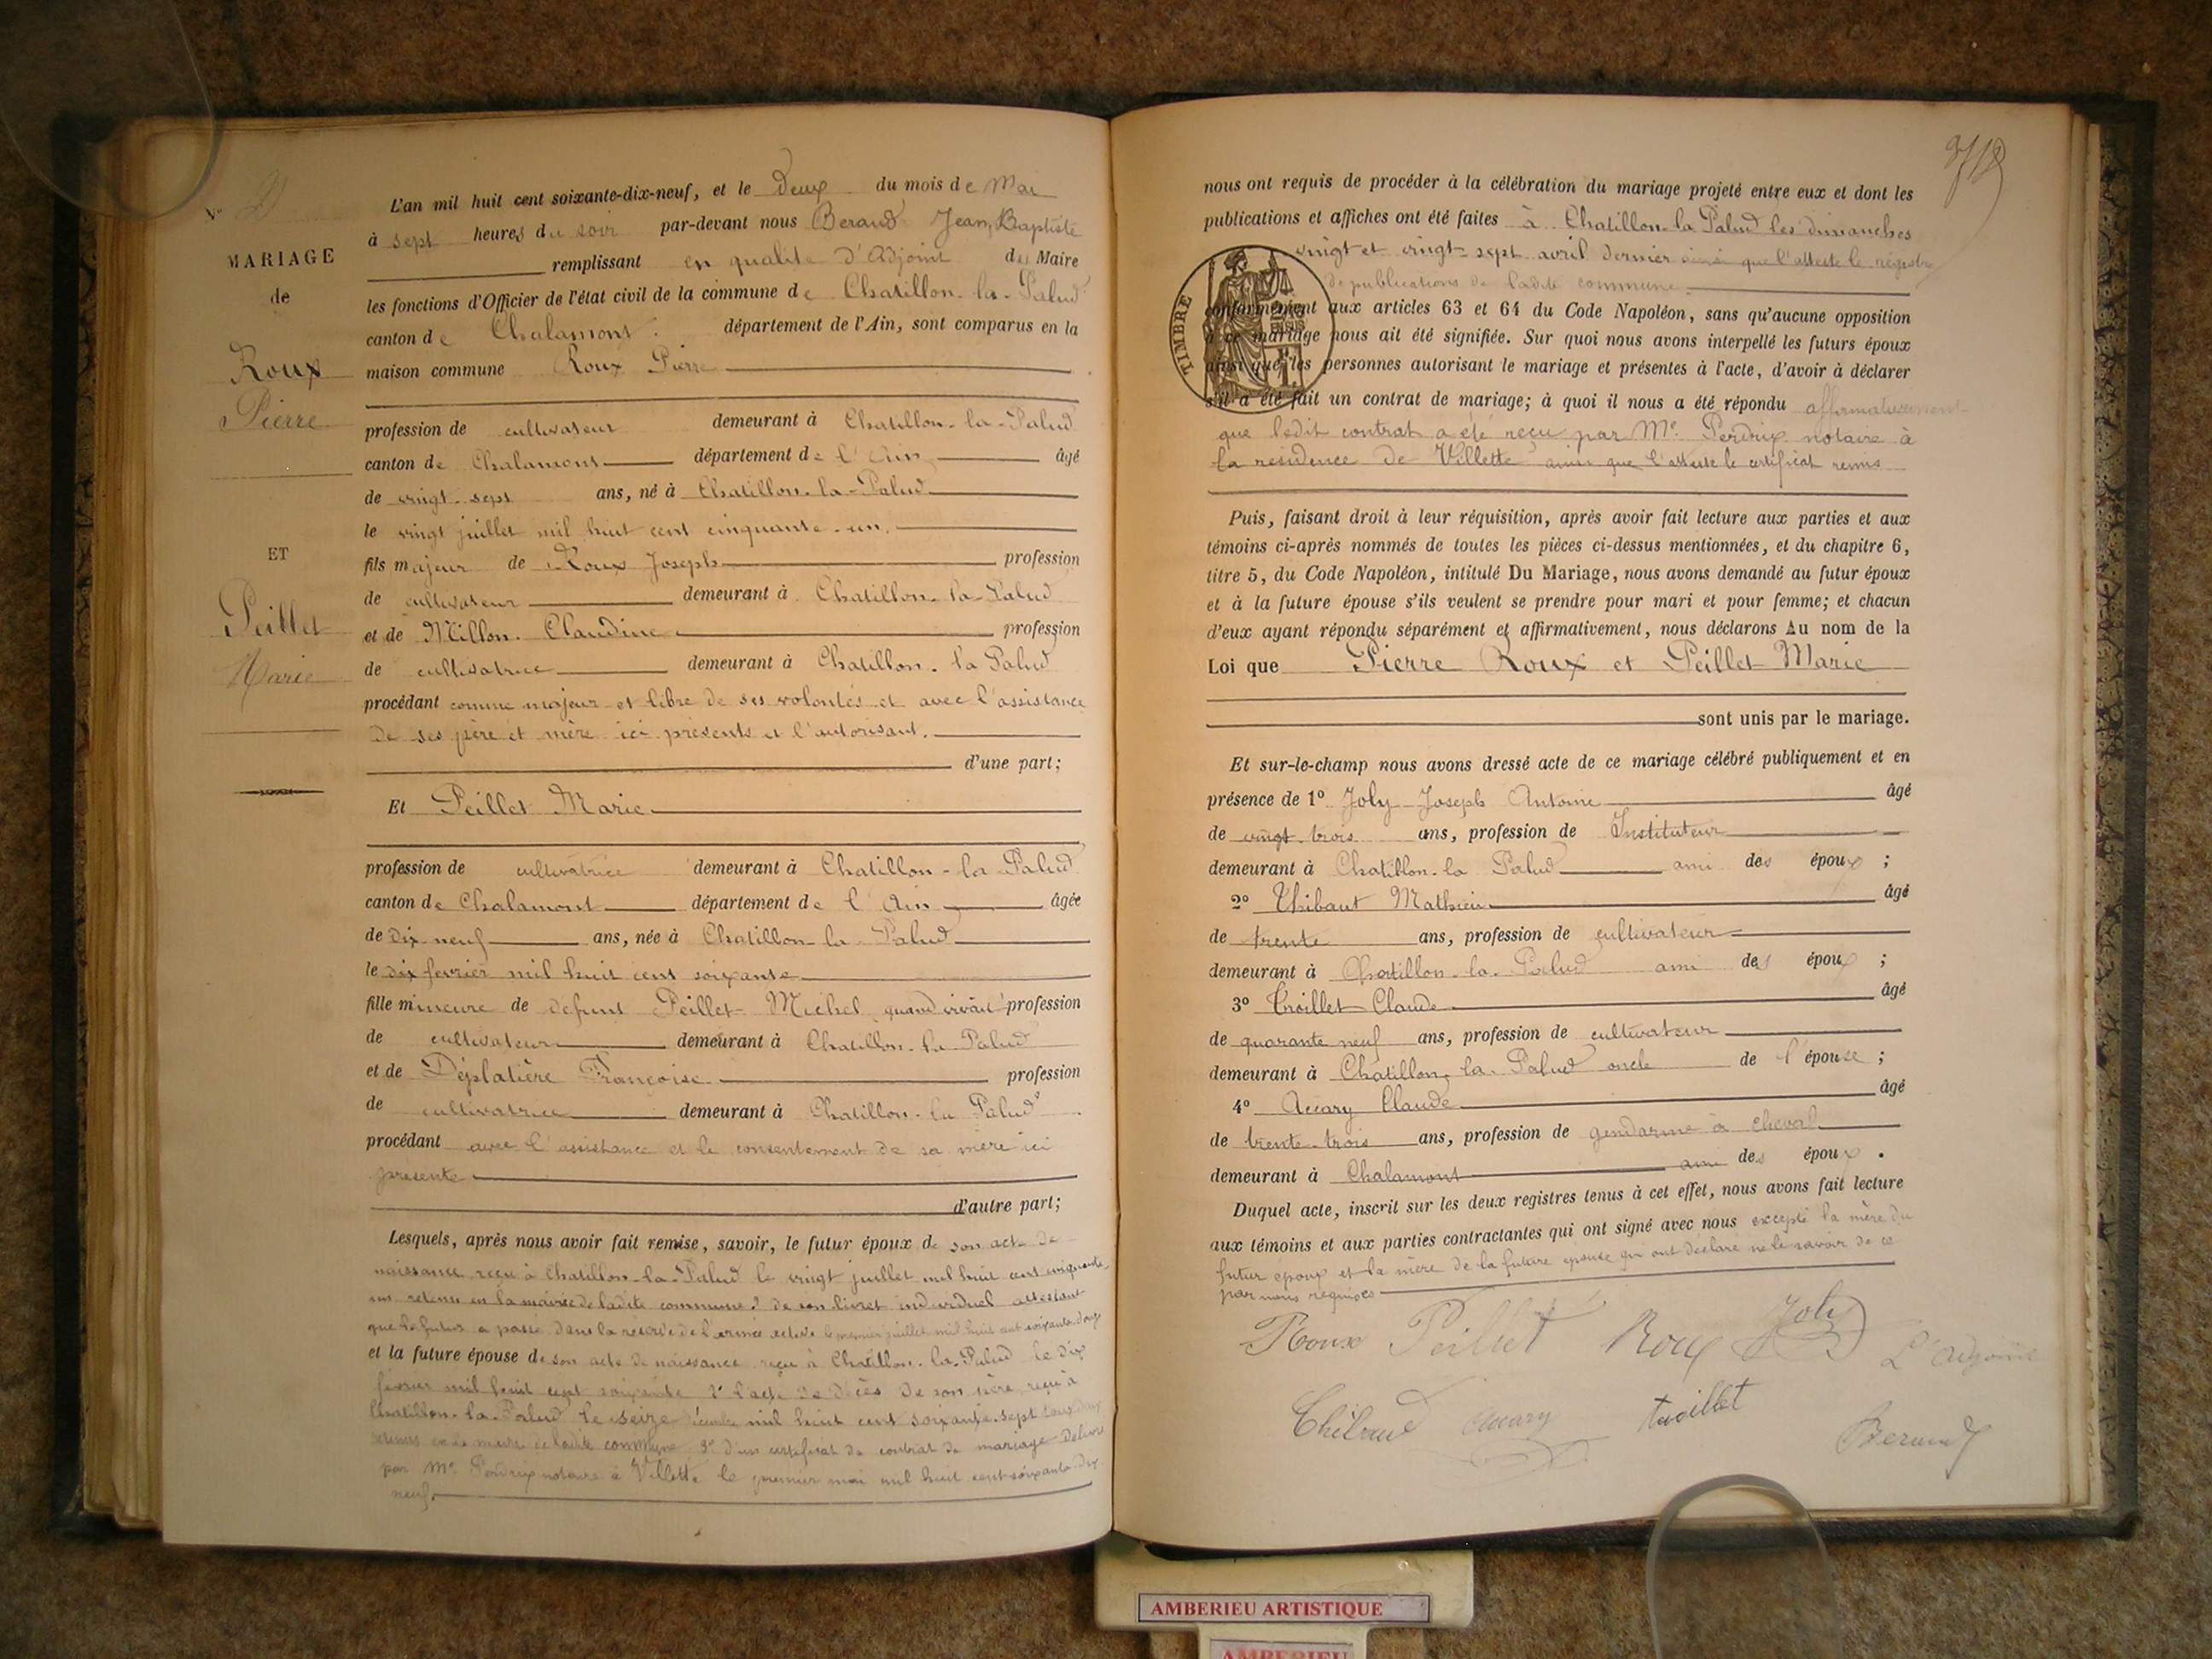 N° 
MARIAGE
de
Roux
Pierre
ET
Peillet
Marie
L'an mil huit cent soixante-dix-neuf, et le Deux du mois de Mai
à sept heures du soir par-devant nous Beraud Jean, Baptiste
remplissant en qualité d'Adjoint du Maire
les fonctions d'Officier de l'état civil de la commune de Chatillon-la-Palud
canton de Chalamont. département de l'Ain, sont comparus en la
maison commune Roux Pierre
profession de cultivateur demeurant à Chatillon-la-Palud
canton de Chalamont département de l'Ain âgé
de vingt-sept ans, né à Chatillon-la-Palud
le vingt juillet mil huit cent cinquante-un.
fils majeur de Roux Joseph profession
de cultivateur demeurant à Chatillon-la-Palud
et de Millon Claudine profession
de cultivatrice demeurant à Chatillon-la Palud
procédant comme majeur et libre de ses volontés et avec l'assistance
de ses père et mère ici présents et l'autorisant.
d'une part;
Et Peillet Marie
profession de cultivatrice demeurant à Chatillon-la Palud
canton de Chalamont département de l'Ain âgée
de dix-neuf ans, née à Chatillon-la-Palud
le dix fevrier mil huit cent soixante
fille mineure de defunt Peillet Michel quand vivait profession
de cultivateur demeurant à Chatillon-la Palud
et de Déplatière Françoise profession
de cultivatrice demeurant à Chatillon-la Palud
procédant avec l'assistance et le consentement de sa mère ici
presente
d'autre part;
Lesquels, après nous avoir fait remise, savoir, le futur époux de son acte de
naissance reçu à Chatillon-la-Palud le vingt juillet mil huit cent cinquante
un retenu en la mairie de ladite commune 2° de son livret individuel attestant
que le futur a passé dans la réserve de l'armée active le premier juillet mil huit cent soixante
et la future épouse de son acte de naissance reçu à Chatillon-la-Palud le dix
février mil huit cent soixante 2° l'acte de décès de son père reçu à
Chatillon-la-Palud le seize mil huit cent soixante-sept tous deux
retenus en la mairie de ladite commune 3° d'un certificat de contrat de mariage délivré
par Me Perdrix notaire à Villette le premier mai mil huit cent soixante-dix
neuf.
nous ont requis de procéder à la célébration du mariage projeté entre eux et dont les
publications et affiches ont été faites à Chatillon-la Palud les dimanches
vingt et vingt-sept avril dernier ainsi que l'atteste le registre
de publications de ladite commune
TIMBRE
conformément aux articles 63 et 64 du Code Napoléon, sans qu'aucune opposition
à ce mariage nous ait été signifiée. Sur quoi nous avons interpellé les futurs époux
ainsi que les personnes autorisant le mariage et présentes à l'acte, d'avoir à déclarer
s'il a été fait un contrat de mariage; à quoi il nous a été répondu affirmativement
que ledit contrat a été reçu par Me Perdrix notaire à
la résidence de Villette ainsi que l'atteste le certificat remis
Puis, faisant droit à leur réquisition, après avoir fait lecture aux parties et aux
témoins ci-après nommés de toutes les pièces ci-dessus mentionnées, et du chapitre 6,
titre 5, du Code Napoléon, intitulé Du Mariage, nous avons demandé au futur époux
et à la future épouse s'ils veulent se prendre pour mari et pour femme; et chacun
d'eux ayant répondu séparément et affirmativement, nous déclarons Au nom de la
Loi que Pierre Roux et Peillet Marie
sont unis par le mariage.
Et sur-le-champ nous avons dressé acte de ce mariage célébré publiquement et en
présence de 1° Joly Joseph Antoine âgé
de vingt trois ans, profession de Instituteur
demeurant à Chatillon-la Palud ami des époux ;
2° Thibaut Mathieu âgé
de trente ans, profession de cultivateur
demeurant à Chatillon-la-Palud ami des époux ;
3° Troillet Claude âgé
de quarante neuf ans, profession de cultivateur
demeurant à Chatillon-la-Palud oncle de l'épouse ;
4° Accary Claude âgé
de trente-trois ans, profession de gendarme à cheval
demeurant à Chalamont ami des époux .
Duquel acte, inscrit sur les deux registres tenus à cet effet, nous avons fait lecture
aux témoins et aux parties contractantes qui ont signé avec nous excepté la mère du
futur époux et la mère de la future épouse qui ont déclaré ne le savoir de ce
par nous requises
Roux Peillet Roux Joly L'Adjoint
Thibaud Accary troillet Beraud
AMBERIEU ARTISTIQUE
AMBERIEU